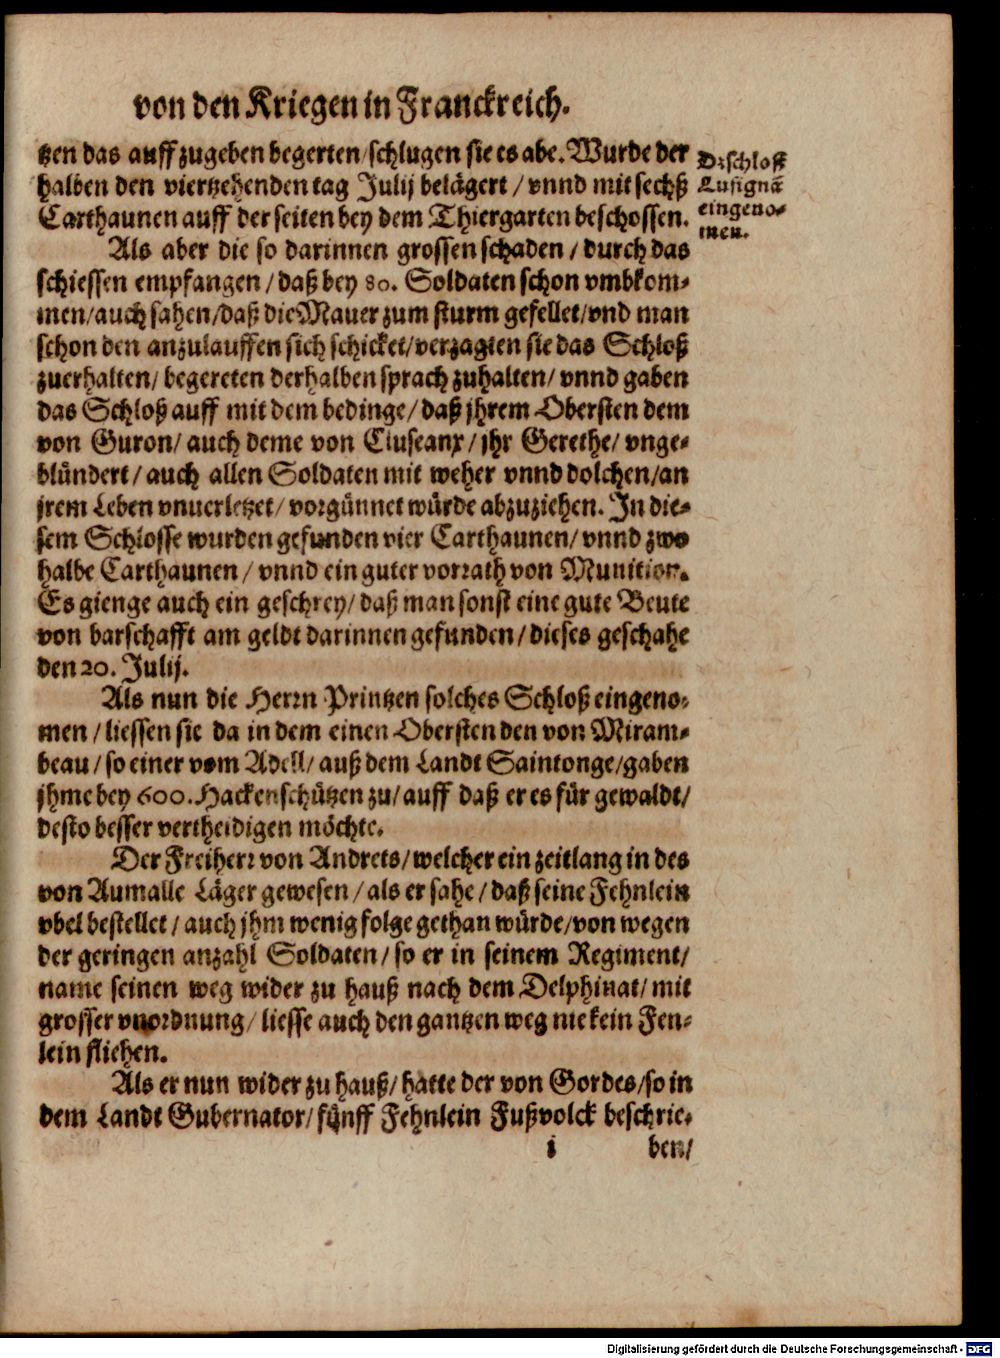 von den Kriegen in Franckreich.
tzen das auff zugeben begerten/schlugen sie es abe. Wurde der
halben den viertzehenden tag Julij belägert/vnnd mit sechß
Carthaunen auff der seiten bey dem Thiergarten beschossen.
Dz schloß
Lusignã
eingeno-
men.
Als aber die so darinnen grossen schaden/durch das
schiessen empfangen/daß bey 80. Soldaten schon vmbkom-
men/auch sahen/daß die Mauer zum sturm gefellet/vnd man
schon den anzulauffen sich schicket/verzagten sie das Schloß
zuerhalten/begereten derhalben sprach zuhalten/vnnd gaben
das Schloß auff mit dem bedinge/daß jhrem Obersten dem
von Guron/auch deme von Cluseanx/jhr Gerethe/vnge-
blündert/auch allen Soldaten mit weher vnnd dolchen/an
jrem Leben vnuerletzet/vorgünnet würde abzuziehen. In die-
sem Schlosse wurden gefunden vier Carthaunen/vnnd zwo
halbe Carthaunen/vnnd ein guter vorrath von Munition.
Es gienge auch ein geschrey/daß man sonst eine gute Beute
von barschafft am geldt darinnen gefunden/dieses geschahe
den 20. Julij.
Als nun die Herrn Printzen solches Schloß eingeno-
men/liessen sie da in dem einen Obersten den von Miram-
beau/so einer vom Adell/auß dem Landt Saintonge/gaben
jhme bey 600. Hackenschützen zu/auff daß er es für gewaldt/
desto besser vertheidigen möchte.
Der Freiherr von Andrets/welcher ein zeitlang in des
von Aumalle Läger gewesen/als er sahe/daß seine Fehnlein
vbel bestellet/auch jhm wenig folge gethan würde/von wegen
der geringen anzahl Soldaten/so er in seinem Regiment/
name seinen weg wider zu hauß nach dem Delphinat/mit
grosser vnordnung/liesse auch den gantzen weg nie kein Fen-
lein fliehen.
Als er nun wider zu hauß/hatte der von Gordes/so in
dem Landt Gubernator/fünff Fehnlein Fußvolck beschrie-
i
ben/
Digitalisierung gefördert durch die Deutsche Forschungsgemeinschaft - DFG